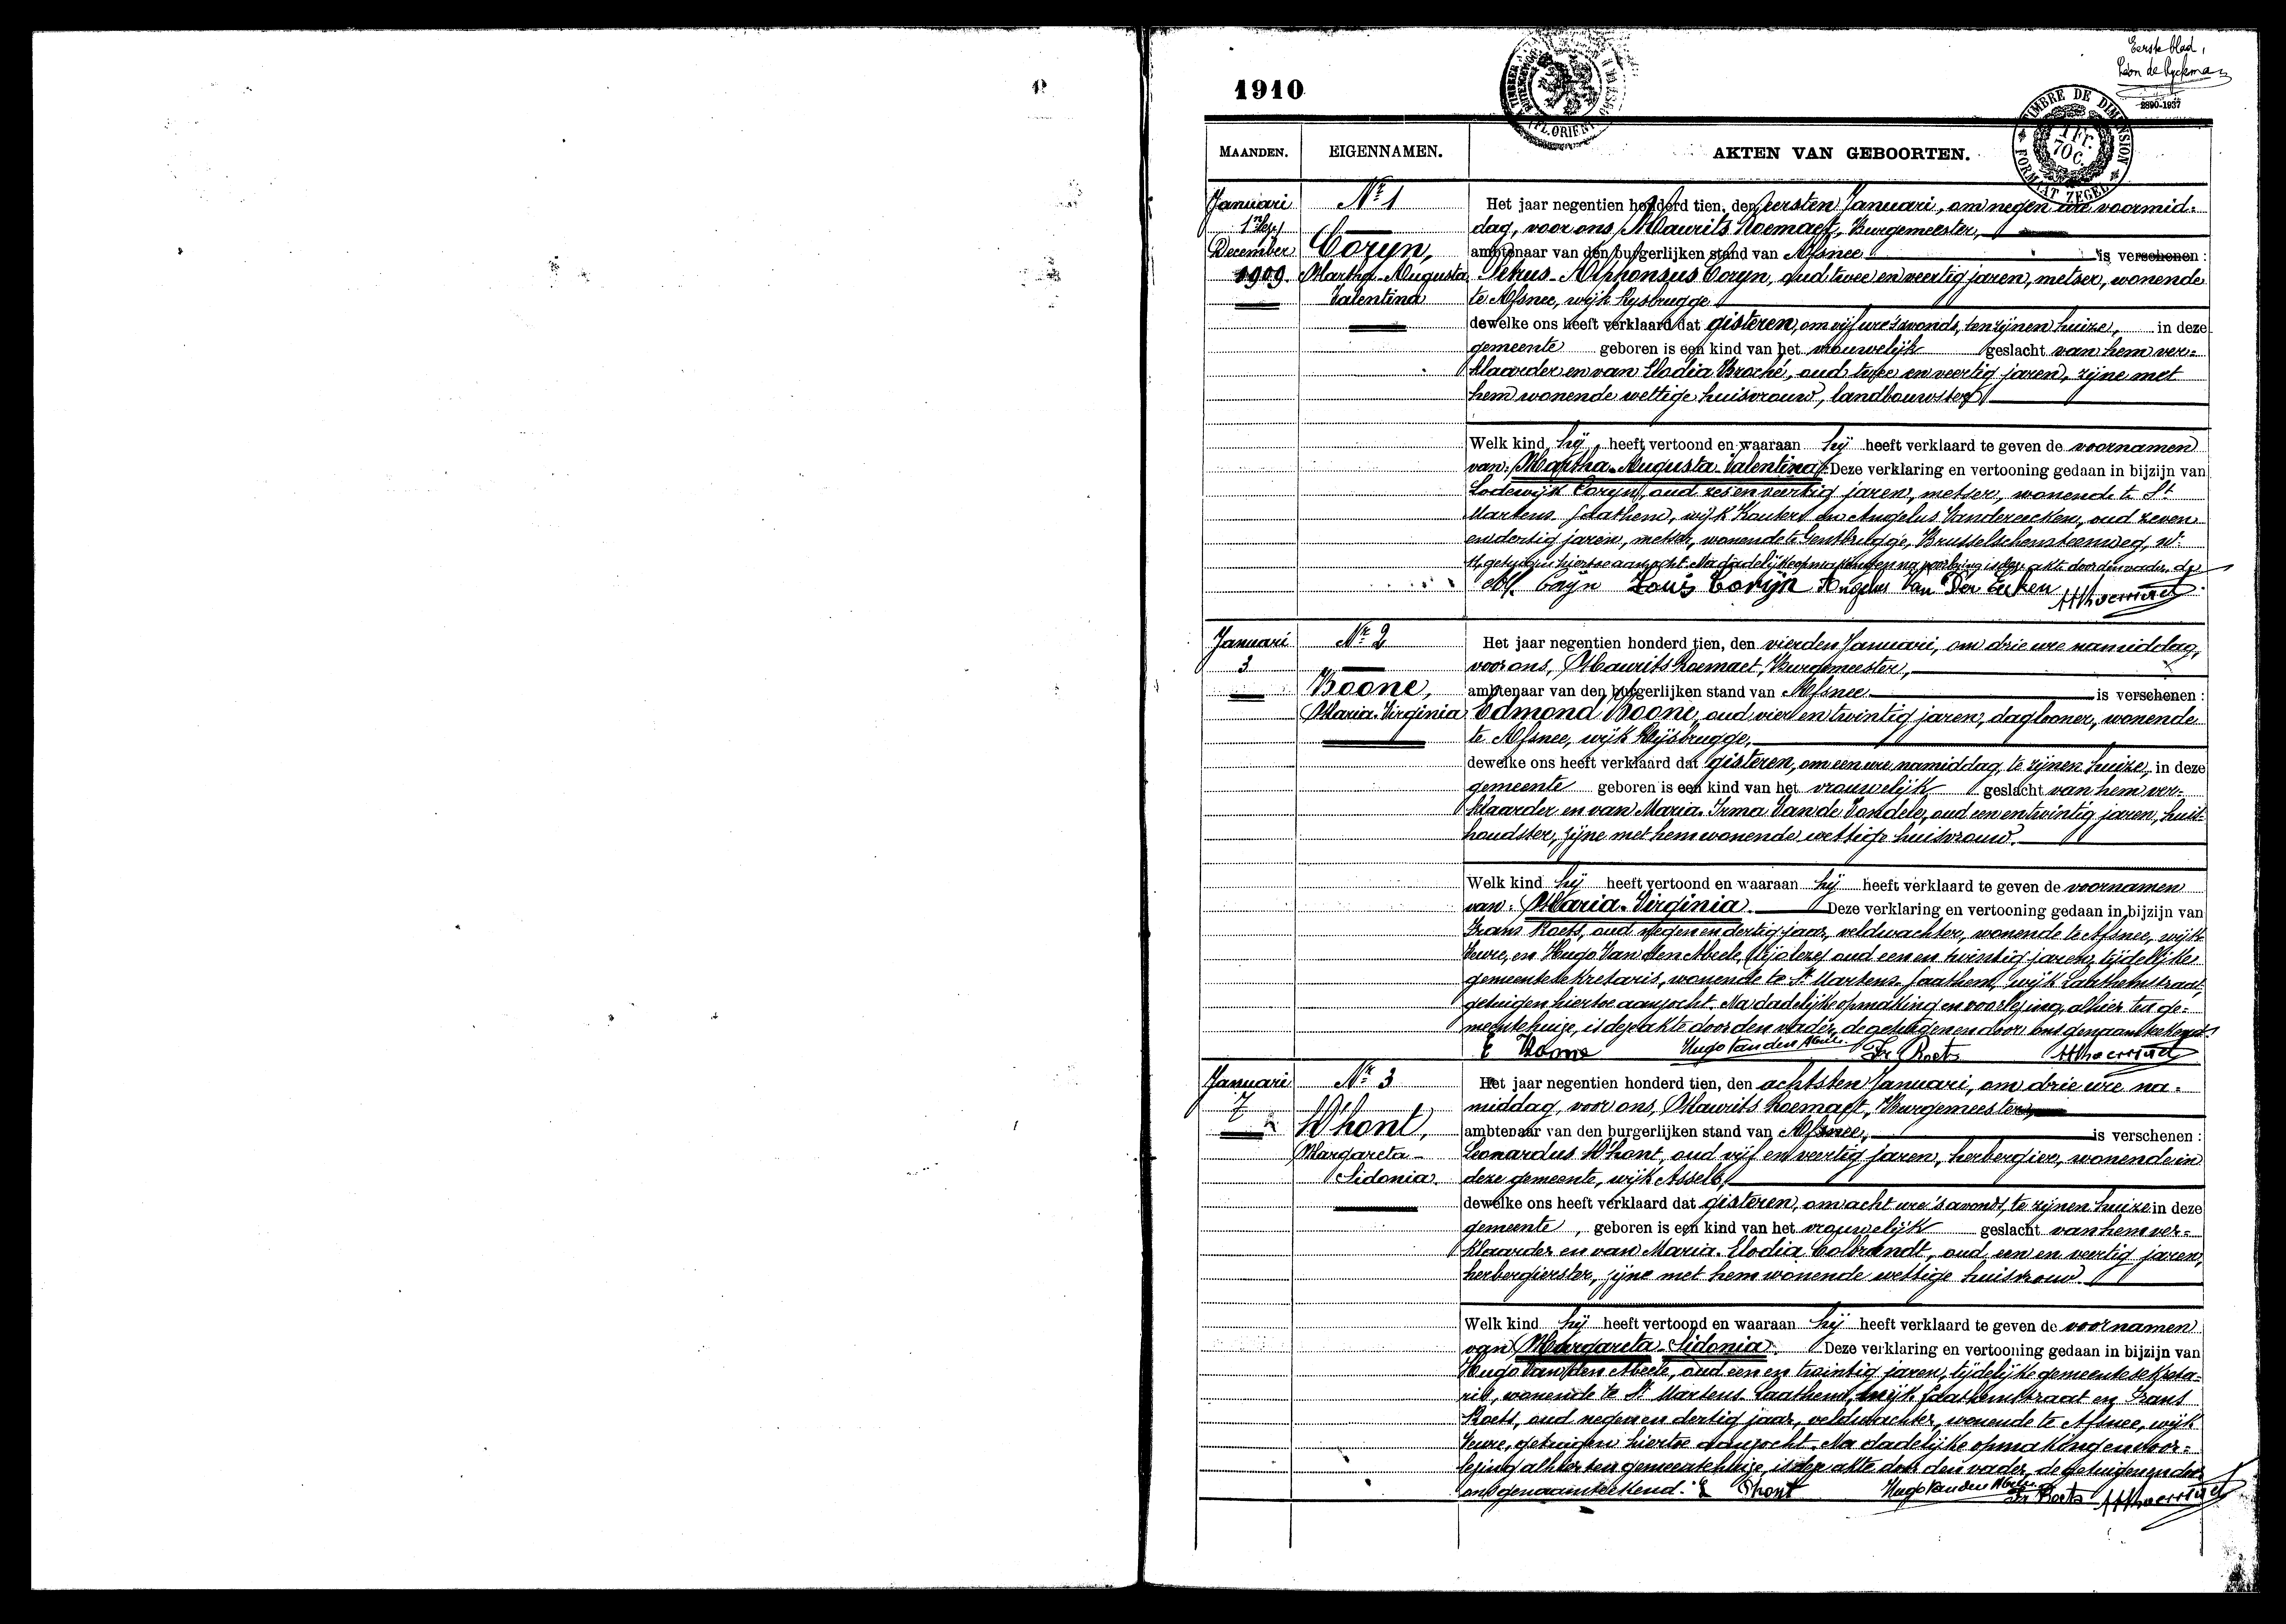 Eerste blad,
Léon de Ryckman
2890-1937
1910
TIMBRE DE DIMENSION
1 Fr.
70 C.
FORMAAT ZEGEL
(FL. ORIENT.)
MAANDEN. EIGENNAMEN. AKTEN VAN GEBOORTEN.
Januari
1
December
1909.
Nr 1
Coryn,
Martha-Augusta
Valentina
Het jaar negentien honderd tien, den eersten Januari, om negen ure voormid-
dag, voor ons Maurits Roemaet, Burgemeester,
ambtenaar van den burgerlijken stand van Afsnee is verschenen :
Petrus-Alphonsus Coryn, oud twee en veertig jaren, metser, wonende
te Afsnee, wijk Rysbrugge
dewelke ons heeft verklaard dat gisteren, om vijf ure 's avonds, ten zijnen huize, in deze
gemeente geboren is een kind van het vrouwelijk geslacht van hem ver-
klaarder en van Elodia Broché, oud twee en veertig jaren, zijne met
hem wonende wettige huisvrouw, landbouwster
Welk kind hij heeft vertoond en waaraan hij heeft verklaard te geven de voornamen
van: Martha-Augusta-Valentina. Deze verklaring en vertooning gedaan in bijzijn van
Lodewijk Coryn, oud zes en veertig jaren, metser, wonende te St
Martens-Laathem, wijk Kouter, en Angelus Vandereecken, oud zeven
en dertig jaren, metser, wonende te Gentbrugge, Brusselschensteenweg, nr
getuigen hiertoe aanzocht. Na dadelijke opmaking en na voorlezing is deze akte door den vader, de
Al. Coryn Louis Coryn Angelus Van Der Eecken MRoemaet
Januari
3
Nr 2
Boone,
Maria-Virginia
Het jaar negentien honderd tien, den vierden Januari, om drie ure namiddag,
voor ons, Maurits Roemaet, Burgemeester,
ambtenaar van den burgerlijken stand van Afsnee is verschenen :
Edmond Boone, oud vier en twintig jaren, daglooner, wonende
te Afsnee, wijk Rijsbrugge,
dewelke ons heeft verklaard dat gisteren, om een ure namiddag, te zijnen huize, in deze
gemeente geboren is een kind van het vrouwelijk geslacht van hem ver-
klaarder en van Maria-Irma Van de Vondele, oud een en twintig jaren, huis-
houdster, zijne met hem wonende wettige huisvrouw.
Welk kind hij heeft vertoond en waaraan hij heeft verklaard te geven de voornamen
van: Maria-Virginia. Deze verklaring en vertooning gedaan in bijzijn van
Frans Roets, oud negen en dertig jaar, veldwachter, wonende te Afsnee, wijk
Veure, en Hugo Van den Abeele, oud een en twintig jaren, tijdelijke
gemeentesekretaris, wonende te St Martens-Laathem, wijk Laathemstraat,
getuigen hiertoe aanzocht. Na dadelijke opmaking en voorlezing, alhier ten ge-
meentehuize, is deze akte door den vader, de getuigen en door ons genaamteekend.
E Boone Hugo Van den Abeele Fr Roets MRoemaet
Januari
7
Nr 3
D'hont,
Margareta-
Sidonia.
Het jaar negentien honderd tien, den achtsten Januari, om drie ure na-
middag, voor ons, Maurits Roemaet, Burgemeester,
ambtenaar van den burgerlijken stand van Afsnee, is verschenen :
Leonardus D'hont, oud vijf en veertig jaren, herbergier, wonende in
deze gemeente, wijk Assels,
dewelke ons heeft verklaard dat gisteren, om acht ure 's avonds, te zijnen huize in deze
gemeente, geboren is een kind van het vrouwelijk geslacht van hem ver-
klaarder en van Maria-Elodia Colbrandt, oud een en veertig jaren,
herbergierster, zijne met hem wonende wettige huisvrouw.
Welk kind hij heeft vertoond en waaraan hij heeft verklaard te geven de voornamen
van Margareta-Sidonia. Deze verklaring en vertooning gedaan in bijzijn van
Hugo Van den Abeele, oud een en twintig jaren, tijdelijke gemeentesekreta-
ris, wonende te St Martens-Laathem, wijk Laathemstraat en Frans
Roets, oud negen en dertig jaar, veldwachter, wonende te Afsnee, wijk
Veure, getuigen hiertoe aanzocht. Na dadelijke opmaking en voor-
lezing alhier ten gemeentehuize, is deze akte door den vader, de getuigen en door
ons genaamteekend. L Dhont Hugo Van den Abeele Fr Roets MRoemaet